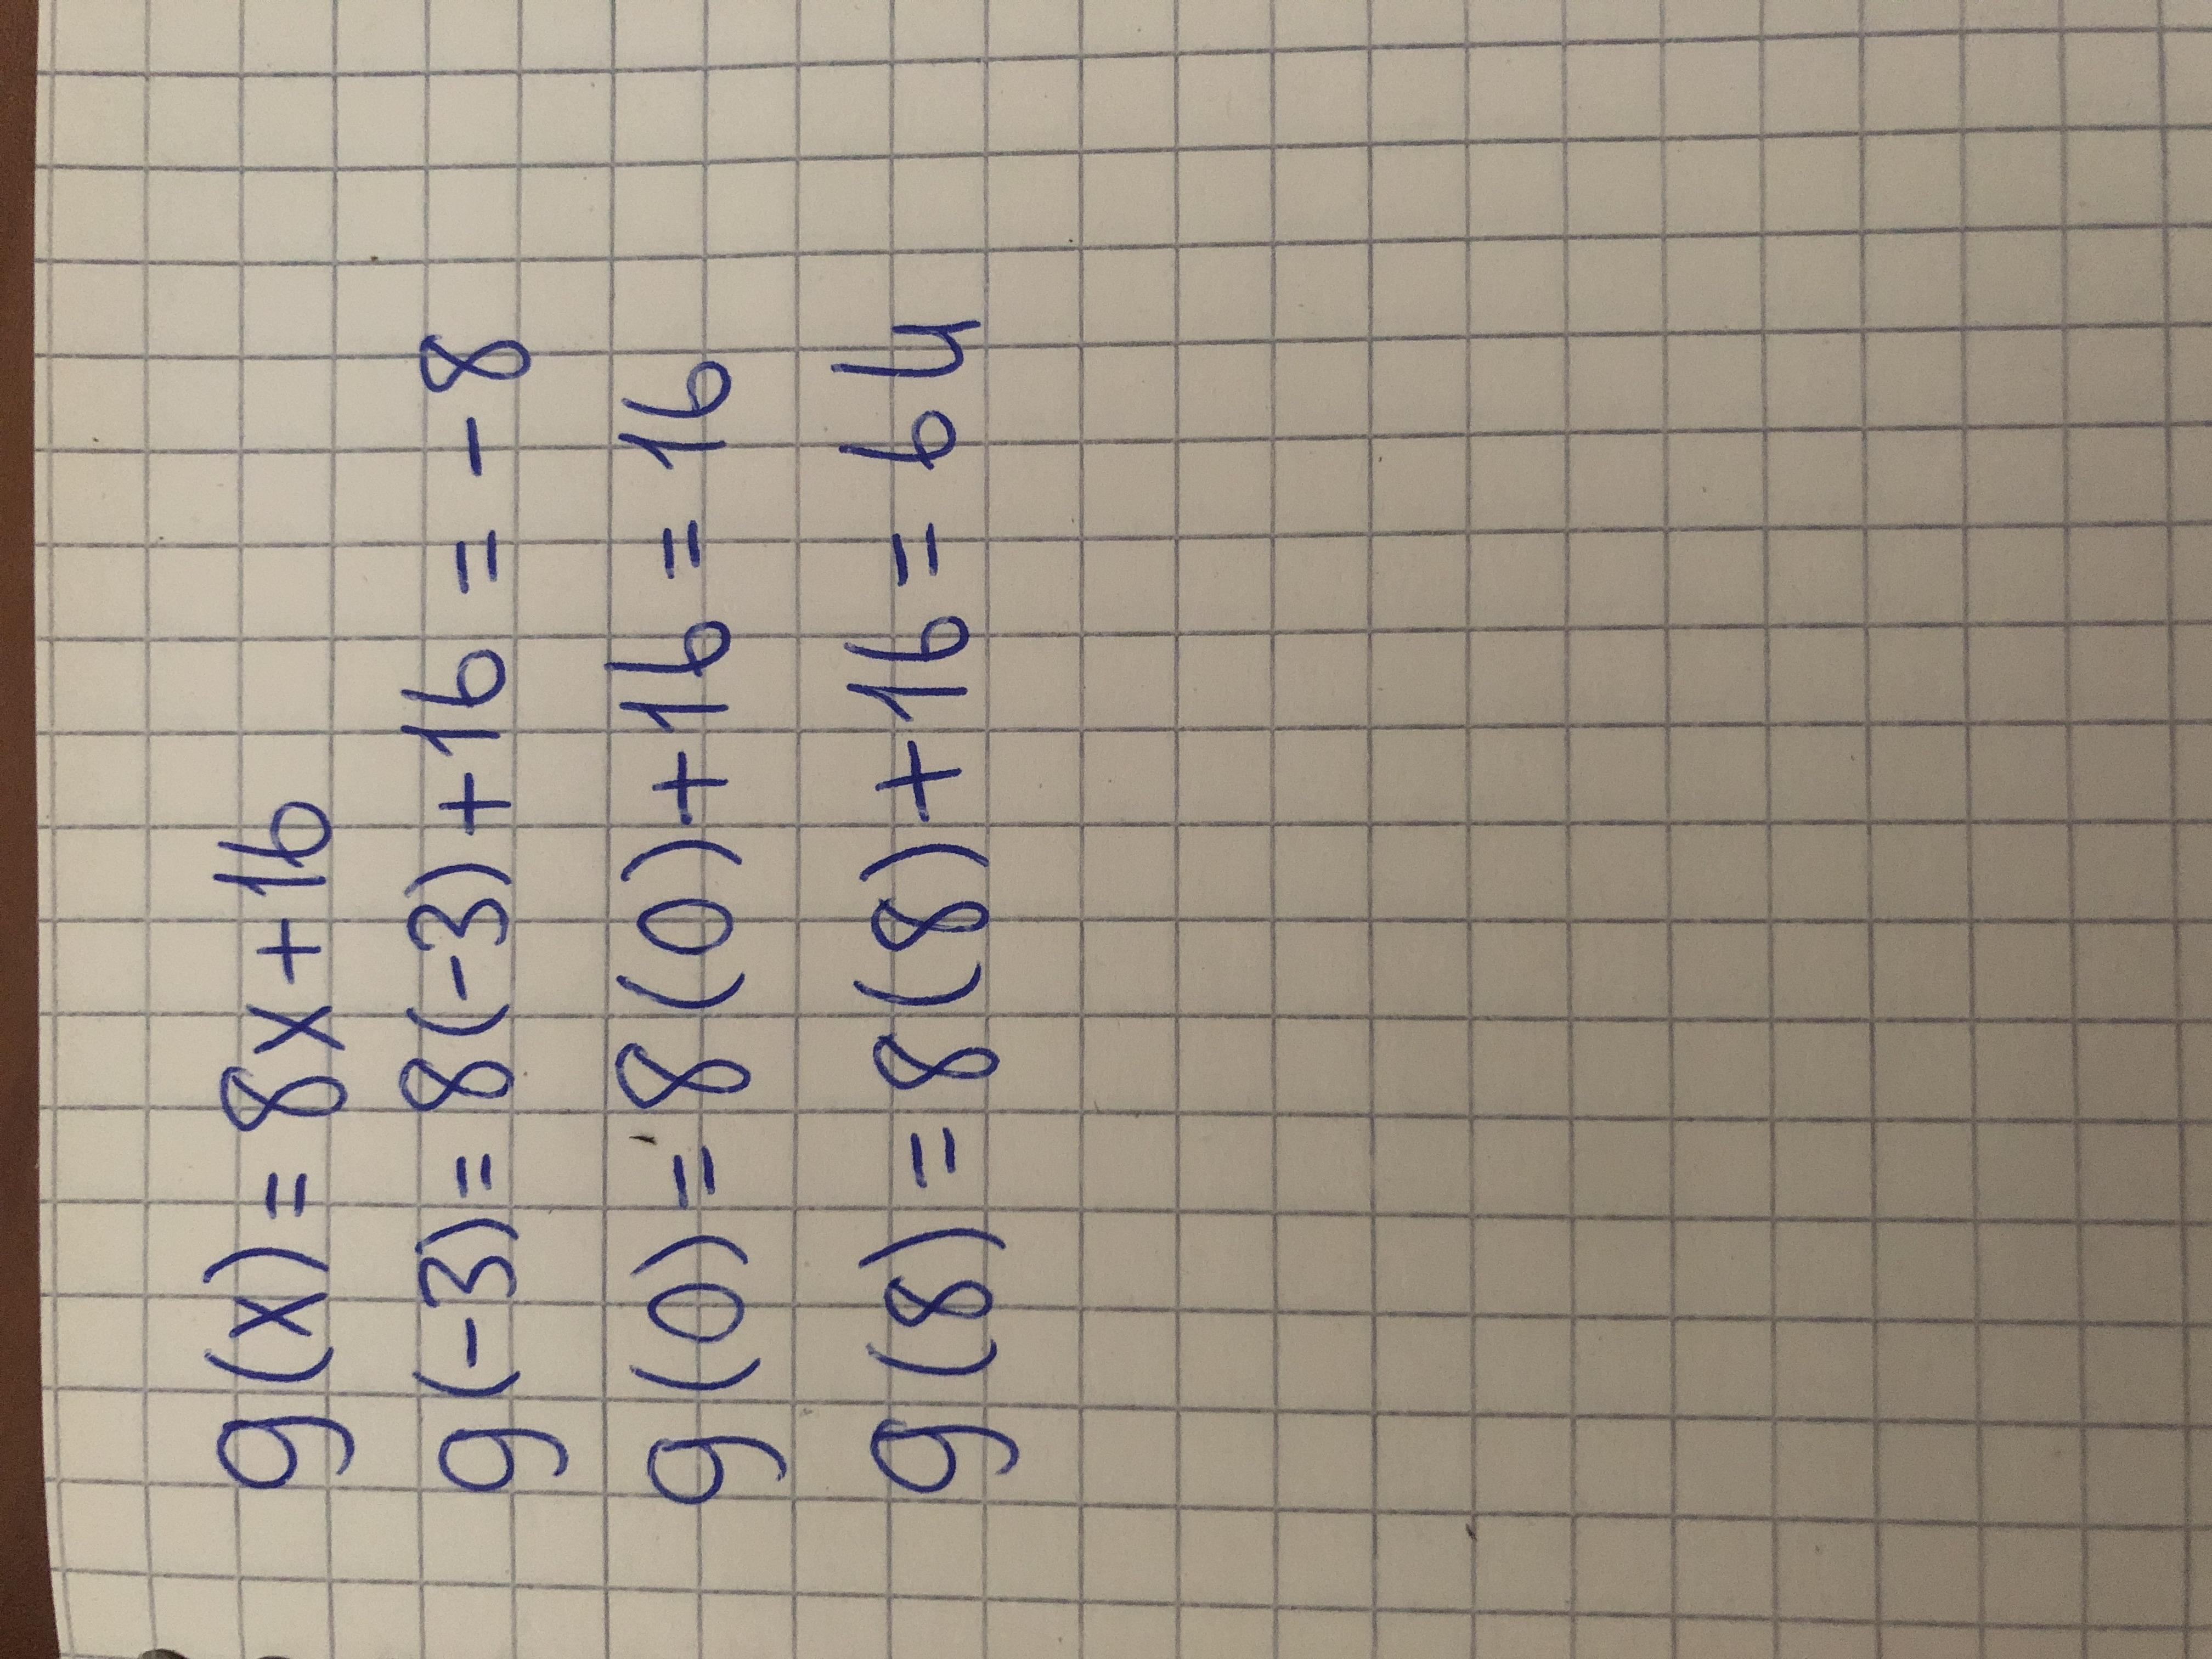 g(x) = 8x + 16
g(-3) = 8(-3) + 16 = -8
g(0) = 8(0) + 16 = 16
g(8) = 8(8) + 16 = 64